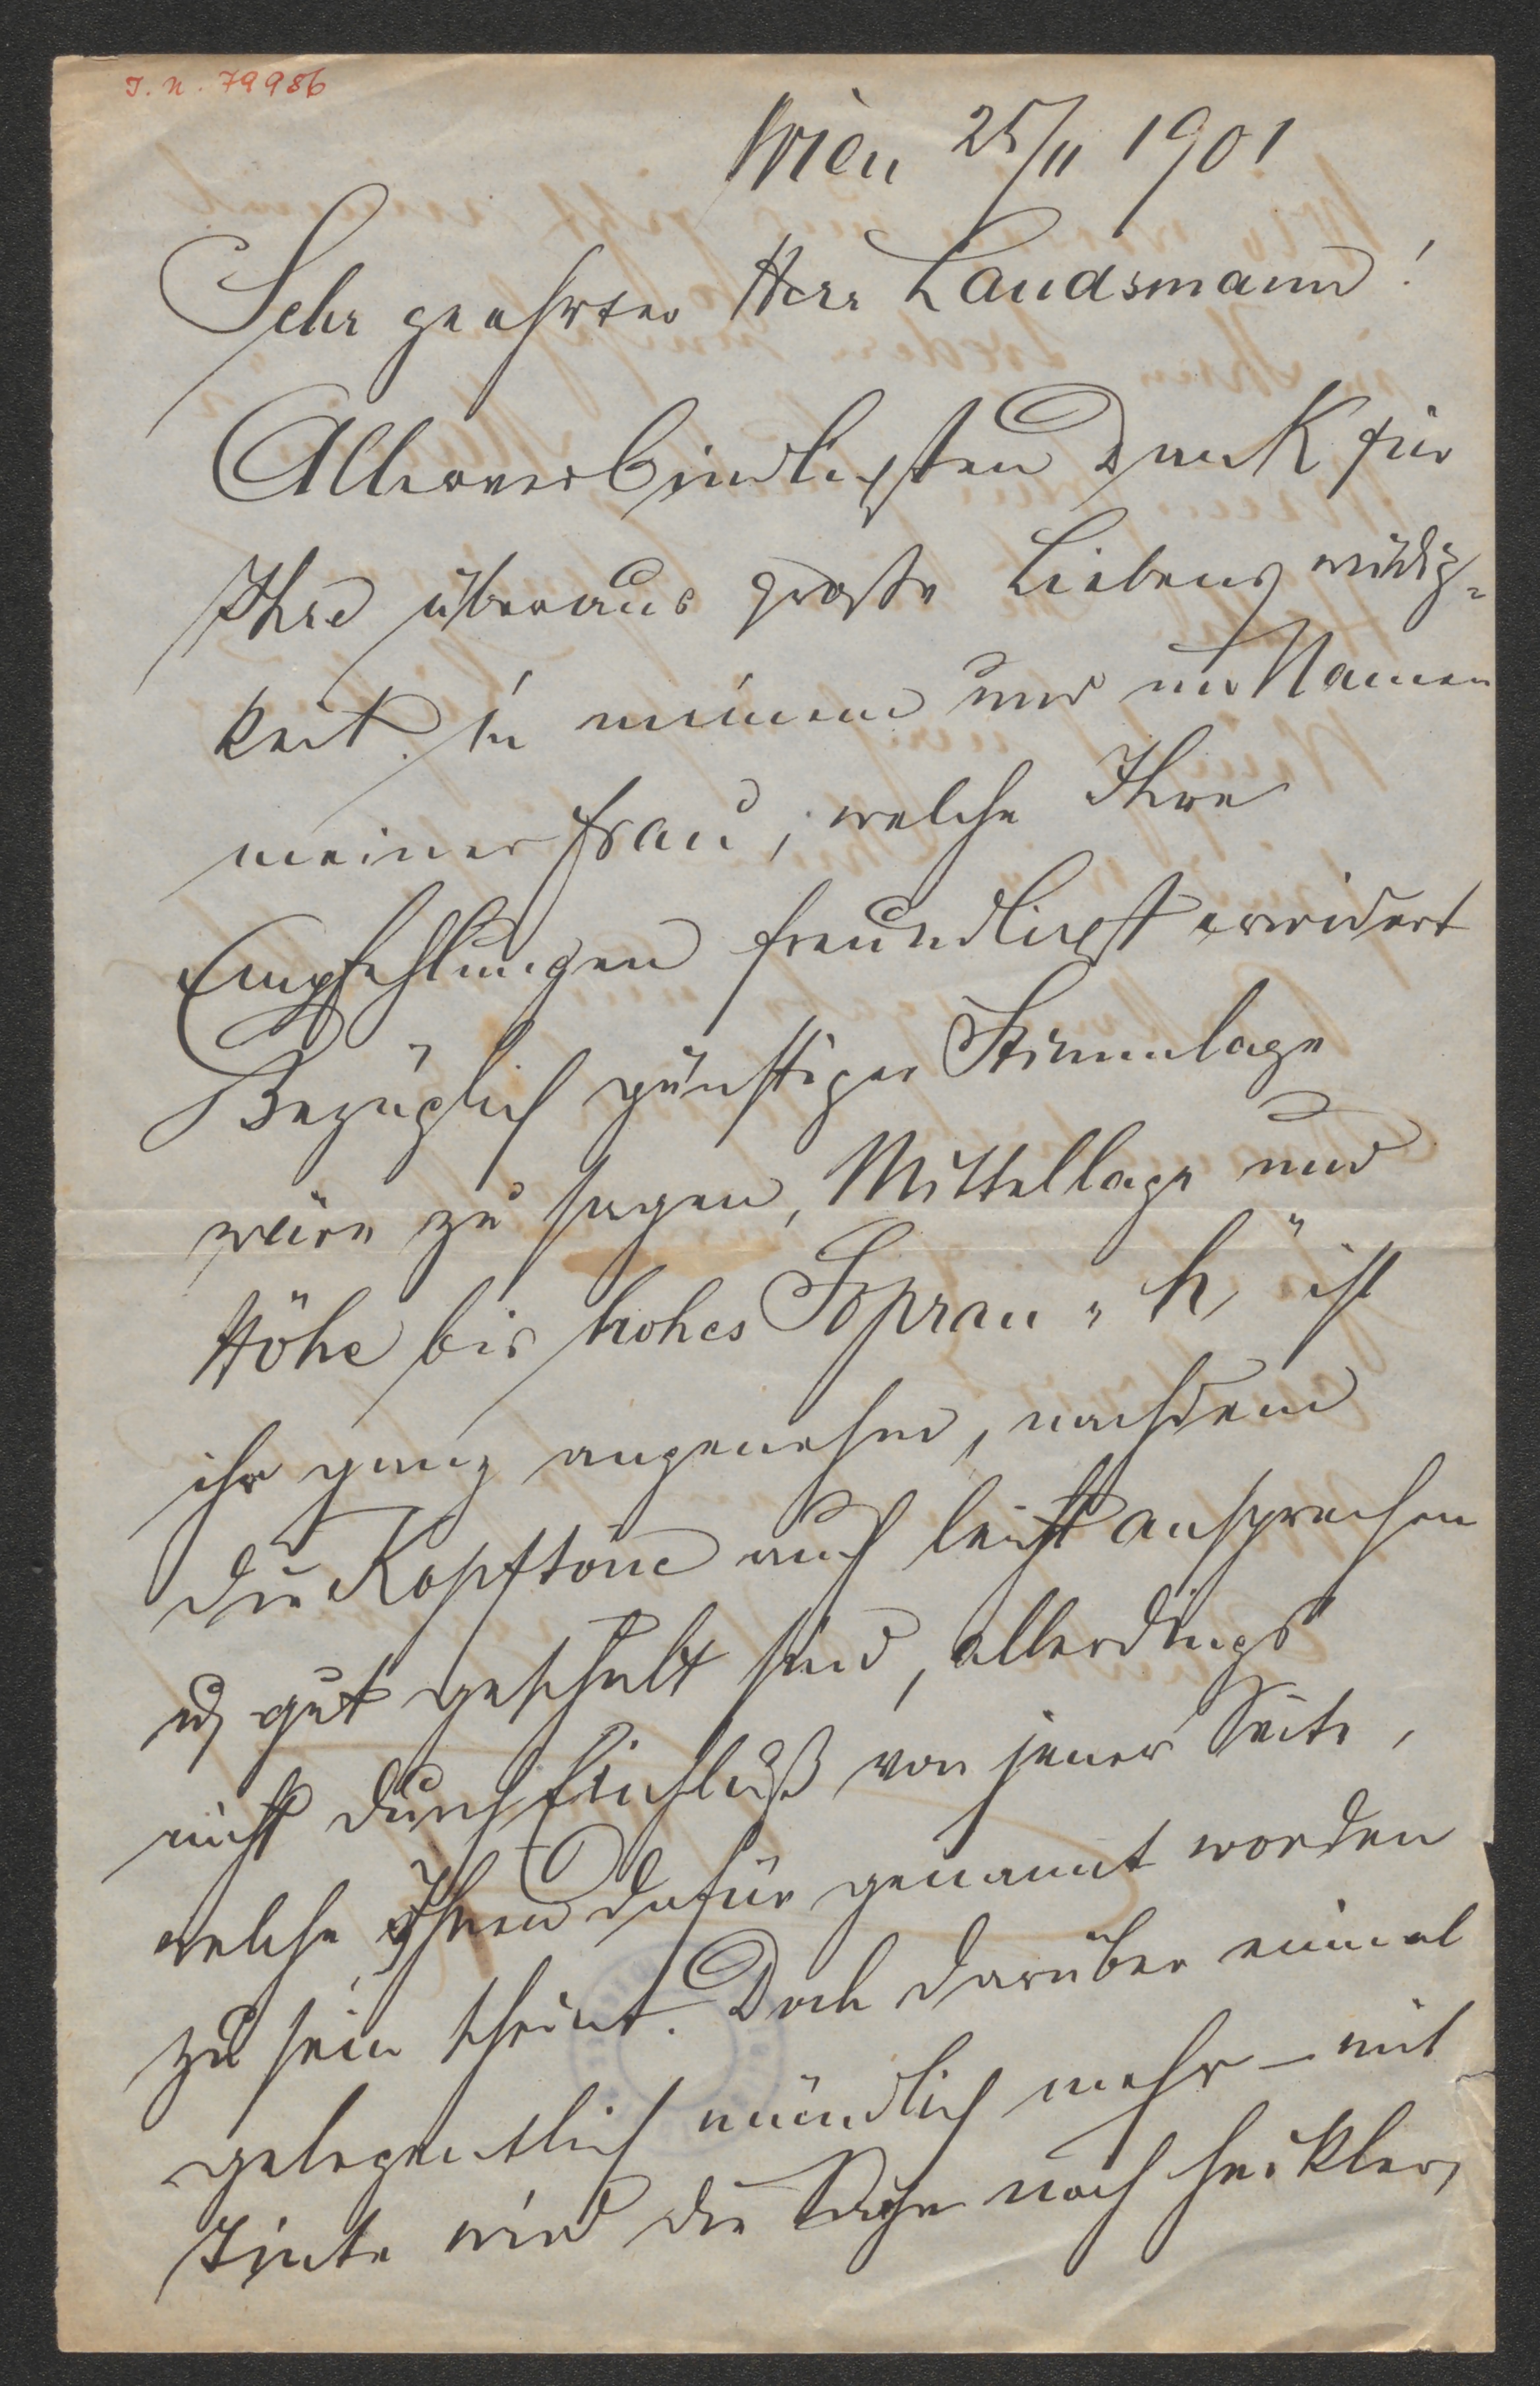 I. N. 79986
Wien 25/II 1901
Sehr geehrter Herr Landsmann!
Allerverbindlichsten Dank für
Ihre überaus große Liebenswürdig-
keit in meinem und im Namen
meiner Frau, welche Ihre
Empfehlungen freundlichst erwidert
Bezüglich günstiger Stimmlage
wäre zu sagen, Mittellage und
Höhe bis hohes Sopran „h" ist
ihr ganz angenehm, nachdem
die Kopftöne auch leicht ansprechen
u gut geschult sind, allerdings
nicht durch Einfluß von jener Seite,
welche Ihnen dafür genannt worden
zu sein scheint. Doch darüber einmal
gelegentlich mündlich mehr – mit
Tinte wird die Sache noch heikler,